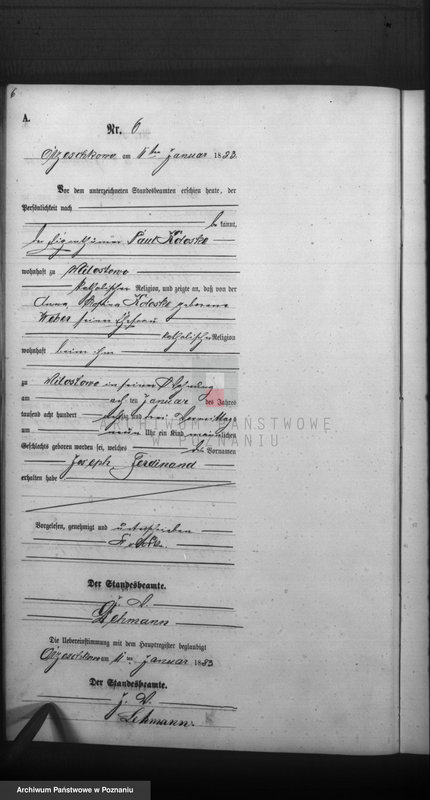 6
A.
Nr. 6
am 11ten Januar 1883.
Vor dem unterzeichneten Standesbeamten erschien heute, der
Persönlichkeit nach
be kannt,
der Eigenthümer Paul Koloske
wohnhaft zu Milostowo
katholischer Religion, und zeigte an, daß von der
Anna Koloske geborene
Weber seiner Ehefrau
katholischer Religion
wohnhaft bei ihm
zu Milostowo in seiner Wohnung
am ten Januar des Jahres
tausend acht hundert achtzig und drei Vormittags
um neun Uhr ein Kind männlichen
Geschlechts geboren worden sei, welches die Vornamen
Joseph Ferdinand
erhalten habe
Vorgelesen, genehmigt und unterschrieben
Der Standesbeamte.
J. V.
Lehmann
Die Uebereinstimmung mit dem Hauptregister beglaubigt
am 11ten Januar 1883
Der Standesbeamte.
J. V.
Lehmann.
ARCHIWUM PAŃSTWOWE
W POZNANIU
Archiwum Państwowe w Poznaniu